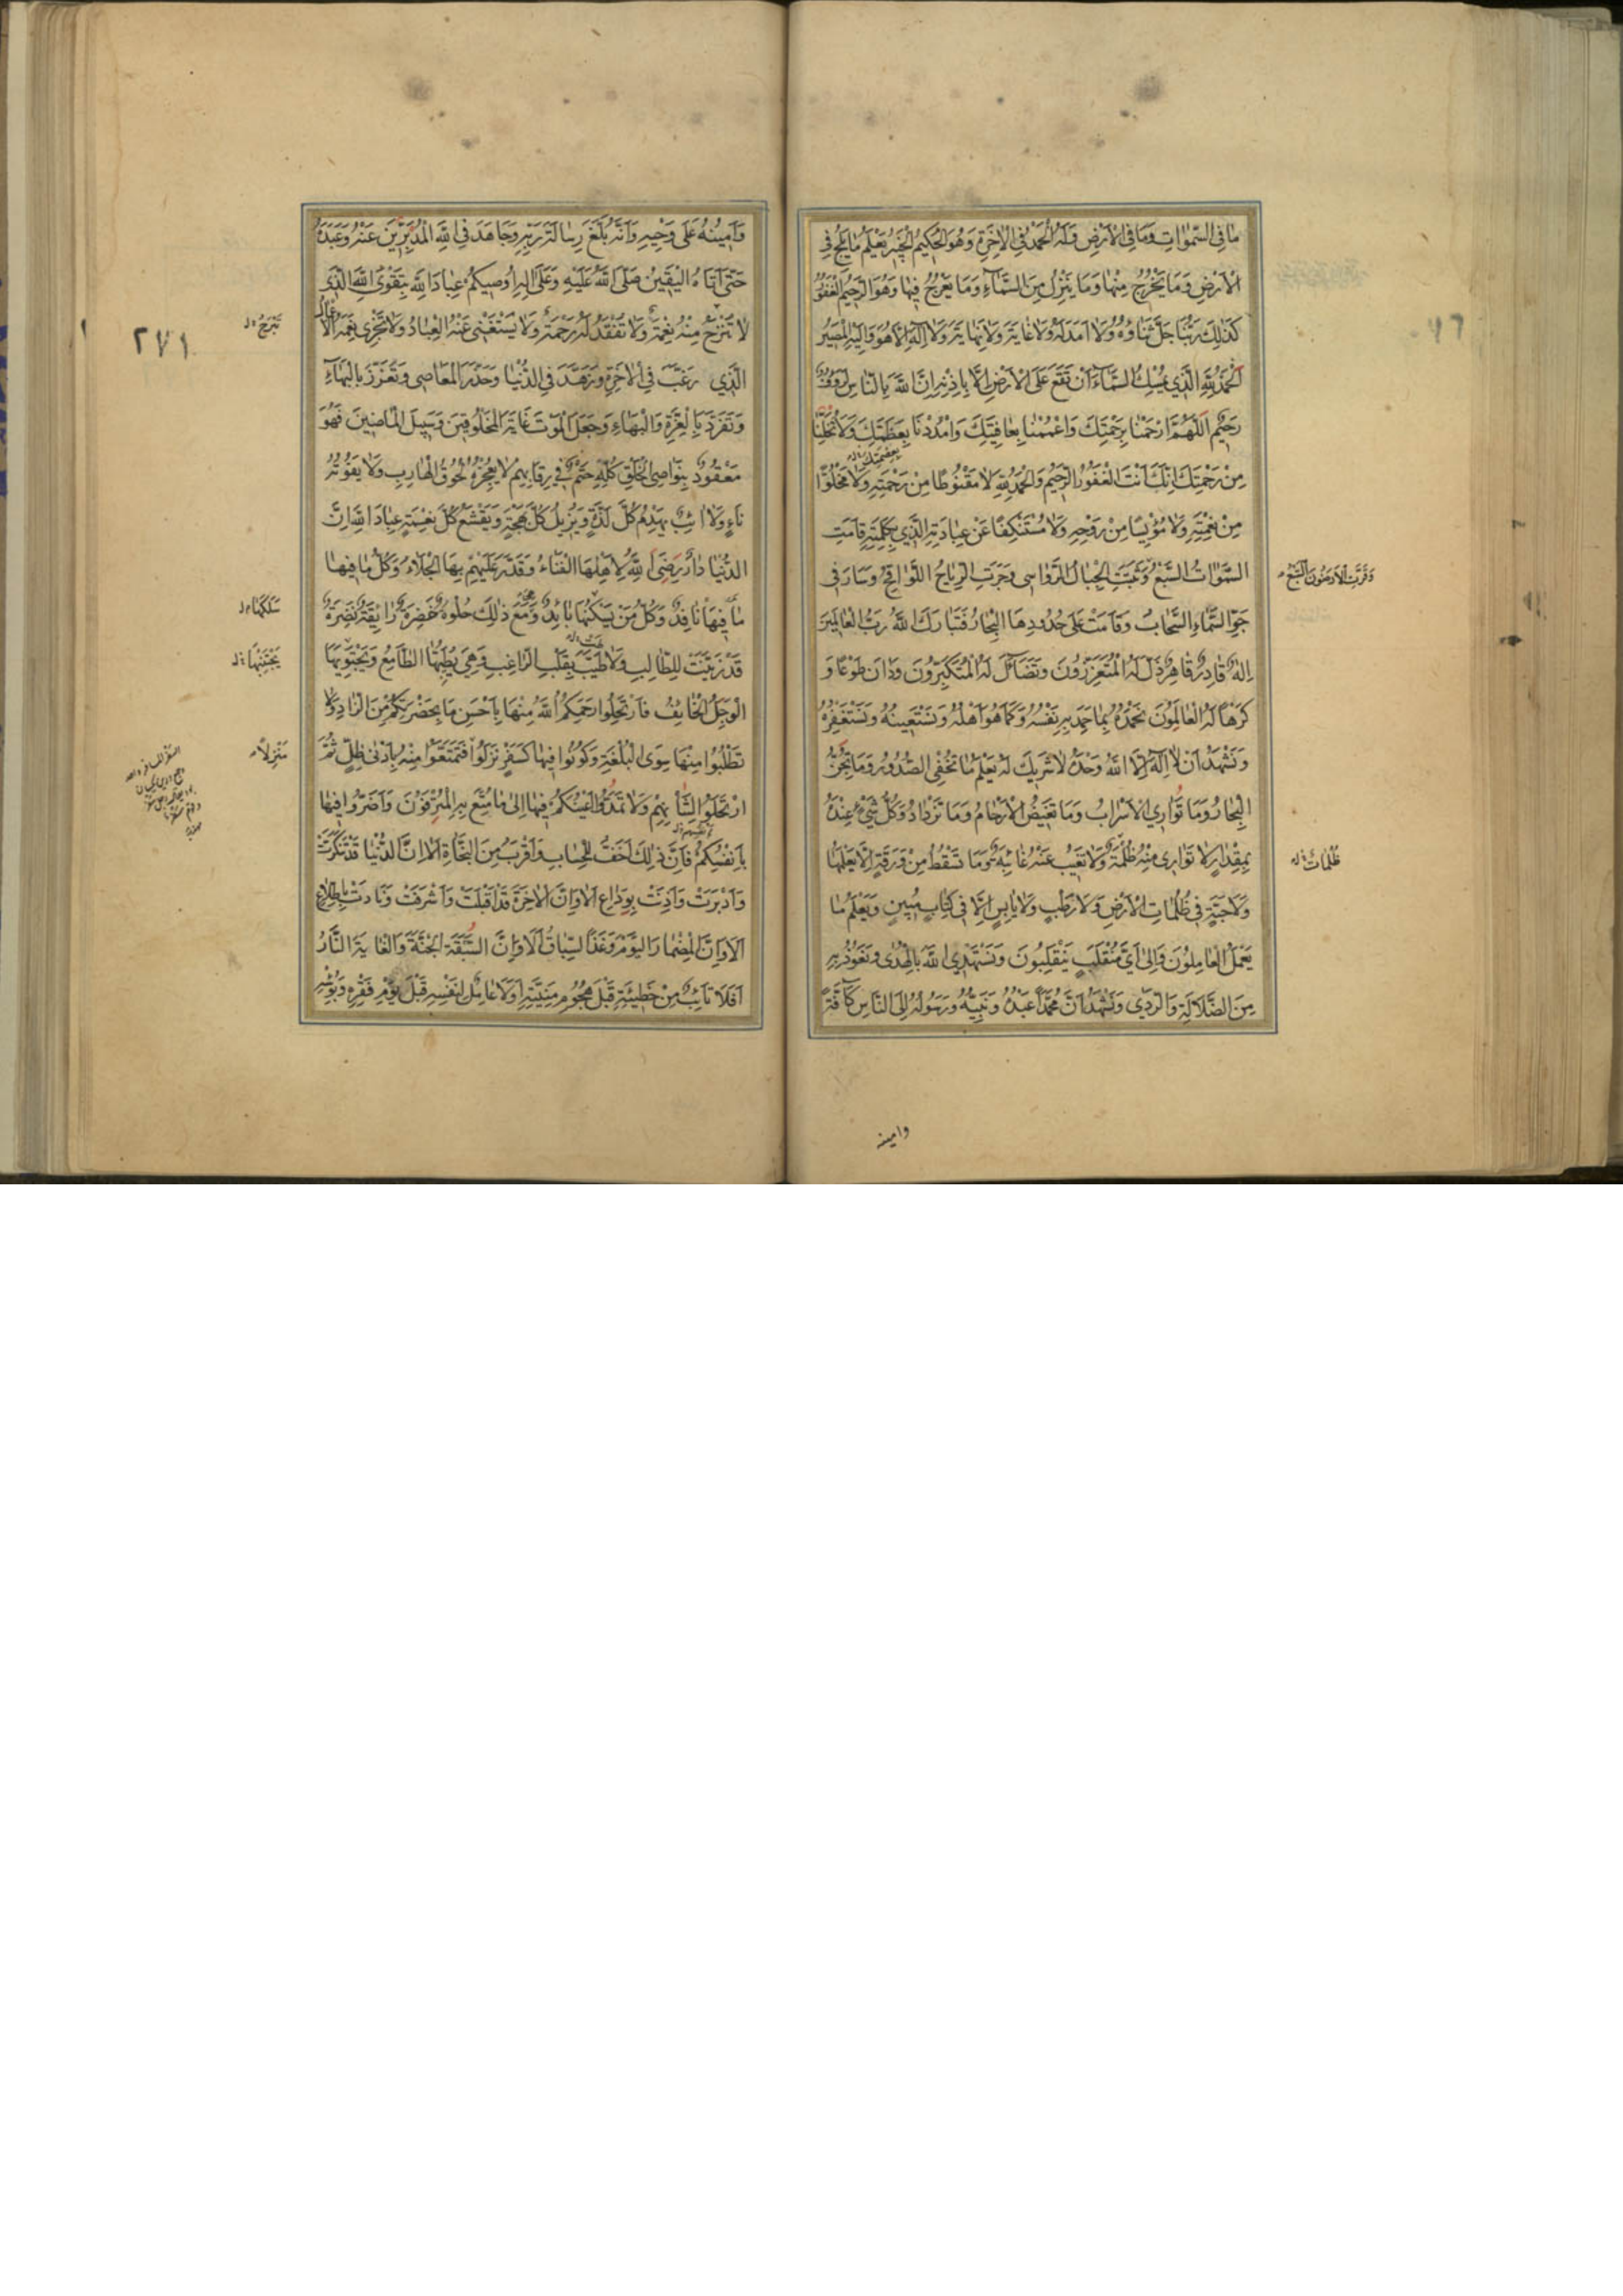 مَا فِي السَّمٰوَاتِ وَمَا فِي الْاَرْضِ وَلَهُ الْحَمْدُ فِي الْاٰخِرَةِ وَهُوَ الْحَكِيمُ الْخَبِيرُ يَعْلَمُ مَا يَلِجُ فِي
الْاَرْضِ وَمَا يَخْرُجُ مِنْهَا وَمَا يَنْزِلُ مِنَ السَّمَاءِ وَمَا يَعْرُجُ فِيهَا وَهُوَ الرَّحِيمُ الْغَفُورُ
كَذٰلِكَ رَبُّنَا جَلَّ ثَنَاؤُهُ وَلَا اَمَدَ لَهُ وَلَا غَايَةَ وَلَا نِهَايَةَ وَلَا اِلٰهَ اِلَّا هُوَ وَاِلَيْهِ الْمَصِيرُ
اَلْحَمْدُ لِلّٰهِ الَّذِي يُمْسِكُ السَّمَاءَ اَنْ تَقَعَ عَلَى الْاَرْضِ اِلَّا بِاِذْنِهِ اِنَّ اللّٰهَ بِالنَّاسِ لَرَؤُفٌ
رَحِيمٌ اَللّٰهُمَّ ارْحَمْنَا بِرَحْمَتِكَ وَاعْمُمْنَا بِعَافِيَتِكَ وَامْدُدْنَا بِعَظَمَتِكَ وَلَا تُخْلِنَا
بعصمتك
مِنْ رَحْمَتِكَ اِنَّكَ اَنْتَ الْغَفُورُ الرَّحِيمُ وَالْحَمْدُ لِلّٰهِ لَا مَقْنُوطًا مِنْ رَحْمَتِهِ وَلَا مَخْلُوًّا
مِنْ نِعْمَتِهِ وَلَا مُؤْيِسًا مِنْ رَوْحِهِ وَلَا مُسْتَنْكِفًا عَنْ عِبَادَتِهِ الَّذِي بِكَلِمَتِهِ قَامَتِ
السَّمٰوَاتُ السَّبْعُ وَثَبَتَتِ الْجِبَالُ الرَّوَاسِي وَجَرَتِ الرِّيَاحُ اللَّوَاقِحُ وَسَارَ فِي
وَقَرَّتِ الْاَرَضُونَ السَّبْعُ
جَوِّ السَّمَاءِ السَّحَابُ وَقَامَتْ عَلَى حُدُودِهَا الْبِحَارُ فَتَبَارَكَ اللّٰهُ رَبُّ الْعَالَمِينَ
اِلٰهٌ قَادِرٌ قَاهِرٌ ذَلَّ لَهُ الْمُتَعَزِّزُونَ وَتَضَاءَلَ لَهُ الْمُتَكَبِّرُونَ وَدَانَ طَوْعًا وَ
كَرْهًا لَهُ الْعَالَمُونَ نَحْمَدُهُ بِمَا حَمِدَ بِهِ نَفْسَهُ وَكَمَا هُوَ اَهْلُهُ وَنَسْتَعِينُهُ وَنَسْتَغْفِرُهُ
وَنَشْهَدُ اَنْ لَا اِلٰهَ اِلَّا اللّٰهُ وَحْدَهُ لَا شَرِيكَ لَهُ يَعْلَمُ مَا تُخْفِي الصُّدُورُ وَمَا تُجِنُّ
الْبِحَارُ وَمَا تُوَارِي الْاَسْرَابُ وَمَا تَغِيضُ الْاَرْحَامُ وَمَا تَزْدَادُ وَكُلُّ شَيْءٍ عِنْدَهُ
بِمِقْدَارٍ لَا تَوَارَى مِنْهُ ظُلْمَةٌ وَلَا تَغِيبُ عَنْهُ غَائِبَةٌ وَمَا تَسْقُطُ مِنْ وَرَقَةٍ اِلَّا يَعْلَمُهَا
ظُلُمَاتٌ
وَلَا حَبَّةٍ فِي ظُلُمَاتِ الْاَرْضِ وَلَا رَطْبٍ وَلَا يَابِسٍ اِلَّا فِي كِتَابٍ مُبِينٍ وَيَعْلَمُ مَا
يَعْمَلُ الْعَامِلُونَ وَاِلٰى اَيِّ مُنْقَلَبٍ يَنْقَلِبُونَ وَنَسْتَهْدِي اللّٰهَ بِالْهُدٰى وَنَعُوذُ بِهِ
مِنَ الضَّلَالَةِ وَالرَّدٰى وَنَشْهَدُ اَنَّ مُحَمَّدًا عَبْدُهُ وَنَبِيُّهُ وَرَسُولُهُ اِلَى النَّاسِ كَافَّةً
وامينه
٢٧١
وَاَمِينُهُ عَلَى وَحْيِهِ وَاَنَّهُ بَلَّغَ رِسَالَةَ رَبِّهِ وَجَاهَدَ فِي اللّٰهِ الْمُدْبِرِينَ عَنْهُ وَعَبَدَهُ
حَتّٰى اَتَاهُ الْيَقِينُ صَلَّى اللّٰهُ عَلَيْهِ وَعَلَى اٰلِهِ اُوصِيكُمْ عِبَادَ اللّٰهِ بِتَقْوَى اللّٰهِ الَّذِي
لَا تَنْزَحُ مِنْهُ نِعْمَةٌ وَلَا تُفْقَدُ لَهُ رَحْمَةٌ وَلَا يَسْتَغْنِي عَنْهُ الْعِبَادُ وَلَا تَجْزِي نِعَمَهُ الْاَعْمَالُ
تَبْرَحُ
الَّذِي رَغَّبَ فِي الْاٰخِرَةِ وَزَهَّدَ فِي الدُّنْيَا وَحَذَّرَ الْمَعَاصِي وَتَعَزَّزَ بِالْبَهَاءِ
وَتَفَرَّدَ بِالْعِزَّةِ وَالْبَهَاءِ وَجَعَلَ الْمَوْتَ غَايَةَ الْمَخْلُوقِينَ وَسَبِيلَ الْمَاضِينَ فَهُوَ
مَعْقُودٌ بِنَوَاصِي الْخَلْقِ كُلِّهِمْ حَتْمٌ فِي رِقَابِهِمْ لَا يُعْجِزُهُ لُحُوقُ الْهَارِبِ وَلَا يَفُوتُهُ
نَاءٍ وَلَا اٰئِبٌ يَهْدِمُ كُلَّ لَذَّةٍ وَيُزِيلُ كُلَّ بَهْجَةٍ وَيَقْشَعُ كُلَّ نِعْمَةٍ عِبَادَ اللّٰهِ اِنَّ
الدُّنْيَا دَارٌ رَضِيَ اللّٰهُ لِاَهْلِهَا الْفَنَاءَ وَقَدَّرَ عَلَيْهِمْ بِهَا الْجَلَاءَ وَكُلُّ مَا فِيهَا
مَا فِيهَا نَافِدٌ وَكُلُّ مَنْ يَسْكُنُهَا بَائِدٌ وَمَعَ ذٰلِكَ حُلْوَةٌ خَضِرَةٌ رَائِقَةٌ نَضِرَةٌ
سَلَكَهَا
قَدْ زُيِّنَتْ لِلطَّالِبِ وَلَاطَتْ بِقَلْبِ الرَّاغِبِ وَهِيَ يُطَيِّبُهَا الطَّامِعُ وَيَجْتَوِيهَا
يَجْتَنِبُهَا
الْوَجِلُ الْخَائِفُ فَارْتَحِلُوا رَحِمَكُمُ اللّٰهُ مِنْهَا بِاَحْسَنِ مَا بِحَضْرَتِكُمْ مِنَ الزَّادِ وَلَا
تَطْلُبُوا مِنْهَا سِوَى الْبُلْغَةِ وَكُونُوا فِيهَا كَسَفْرٍ نَزَلُوا فَتَمَتَّعُوا مِنْهُ بِاَدْنٰى ظِلٍّ ثُمَّ
مَنْزِلًا
ارْتَحَلُوا لِشَأْنِهِمْ وَلَا تَمُدُّوا اَعْيُنَكُمْ فِيهَا اِلٰى مَا مُتِّعَ بِهِ الْمُتْرَفُونَ وَاَضِرُّوا فِيهَا
بِاَنْفُسِكُمْ فَاِنَّ ذٰلِكَ اَخَفُّ لِلْحِسَابِ وَاَقْرَبُ مِنَ النَّجَاةِ اَلَا اِنَّ الدُّنْيَا قَدْ تَنَكَّرَتْ
وَاَدْبَرَتْ وَاٰذَنَتْ بِوَدَاعٍ اَلَا وَاِنَّ الْاٰخِرَةَ قَدْ اَقْبَلَتْ وَاَشْرَفَتْ وَنَادَتْ بِاطِّلَاعٍ
اَلَا وَاِنَّ الْمِضْمَارَ الْيَوْمَ وَغَدًا السِّبَاقُ اَلَا وَاِنَّ السَّبْقَةَ الْجَنَّةُ وَالْغَايَةَ النَّارُ
اَفَلَا تَائِبٌ مِنْ خَطِيئَتِهِ قَبْلَ هُجُومِ مَنِيَّتِهِ اَوَلَا عَامِلٌ لِنَفْسِهِ قَبْلَ يَوْمِ فَقْرِهِ وَبُؤْسِهِ